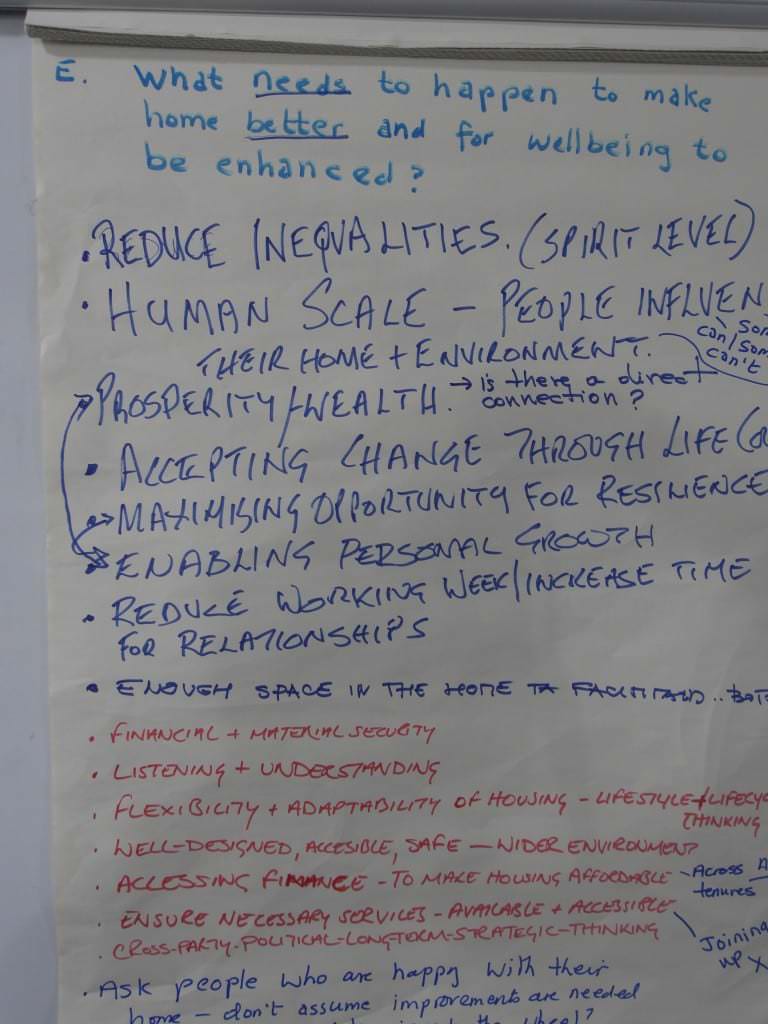 E. What needs to happen to make
home better and for wellbeing to
be enhanced?
• REDUCE INEQUALITIES. (SPIRIT LEVEL)
• HUMAN SCALE – PEOPLE INFLUEN
THEIR HOME + ENVIRONMENT.
can/som
can't
PROSPERITY/WEALTH. → is there a direct
connection?
• ACCEPTING CHANGE THROUGH LIFE
MAXIMISING OPPORTUNITY FOR RESILIENCE
ENABLING PERSONAL GROWTH
• REDUCE WORKING WEEK/INCREASE TIME
FOR RELATIONSHIPS
• ENOUGH SPACE IN THE HOME
• FINANCIAL + MATERIAL SECURITY
• LISTENING + UNDERSTANDING
• FLEXIBILITY + ADAPTABILITY OF HOUSING – LIFESTYLE + LIFECYC
THINKING
• WELL-DESIGNED, ACCESIBLE, SAFE – WIDER ENVIRONMENT
• ACCESSING FINANCE – TO MAKE HOUSING AFFORDABLE – Across
tenures
• ENSURE NECESSARY SERVICES – AVAILABLE + ACCESSIBLE
• CROSS-PARTY-POLITICAL-LONGTERM-STRATEGIC-THINKING
Joining
up
• Ask people who are happy with their
home – don't assume improvements are needed
the wheel?